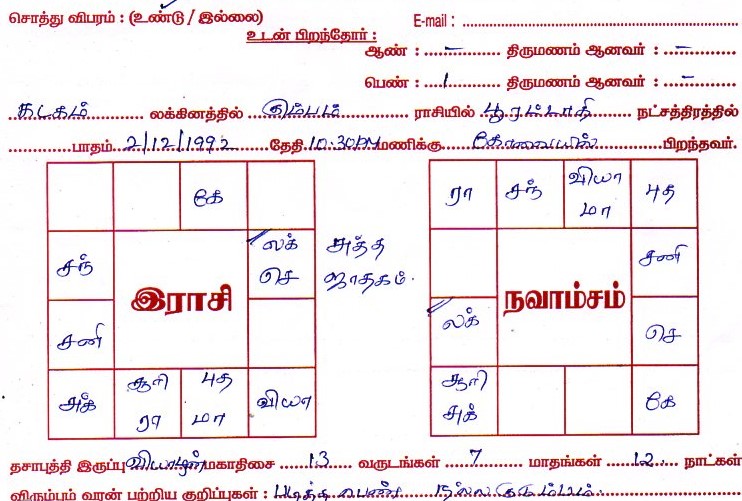 சொத்து விபரம் : (உண்டு / இல்லை) E-mail :
உடன் பிறந்தோர் :
ஆண் : – திருமணம் ஆனவர் : –
பெண் : 1 திருமணம் ஆனவர் : –
கடகம் லக்கினத்தில் கும்பம் ராசியில் பூரட்டாதி நட்சத்திரத்தில்
பாதம் 2/12/1992 தேதி 10:30PM மணிக்கு கோவையில் பிறந்தவர்.
கே
சந் லக் செ
சனி
இராசி
சுக் சூரி ரா புத மா வியா
சுத்த
ஜாதகம்.
ரா சந் வியா மா புத
சனி
லக் செ
நவாம்சம்
சூரி சுக் கே
தசாபுத்தி இருப்பு வியாழன் மகாதிசை 13 வருடங்கள் 7 மாதங்கள் 12 நாட்கள்
விரும்பம் வரன் பற்றிய குறிப்புகள் : படித்த பெண் நல்ல குடும்பம்